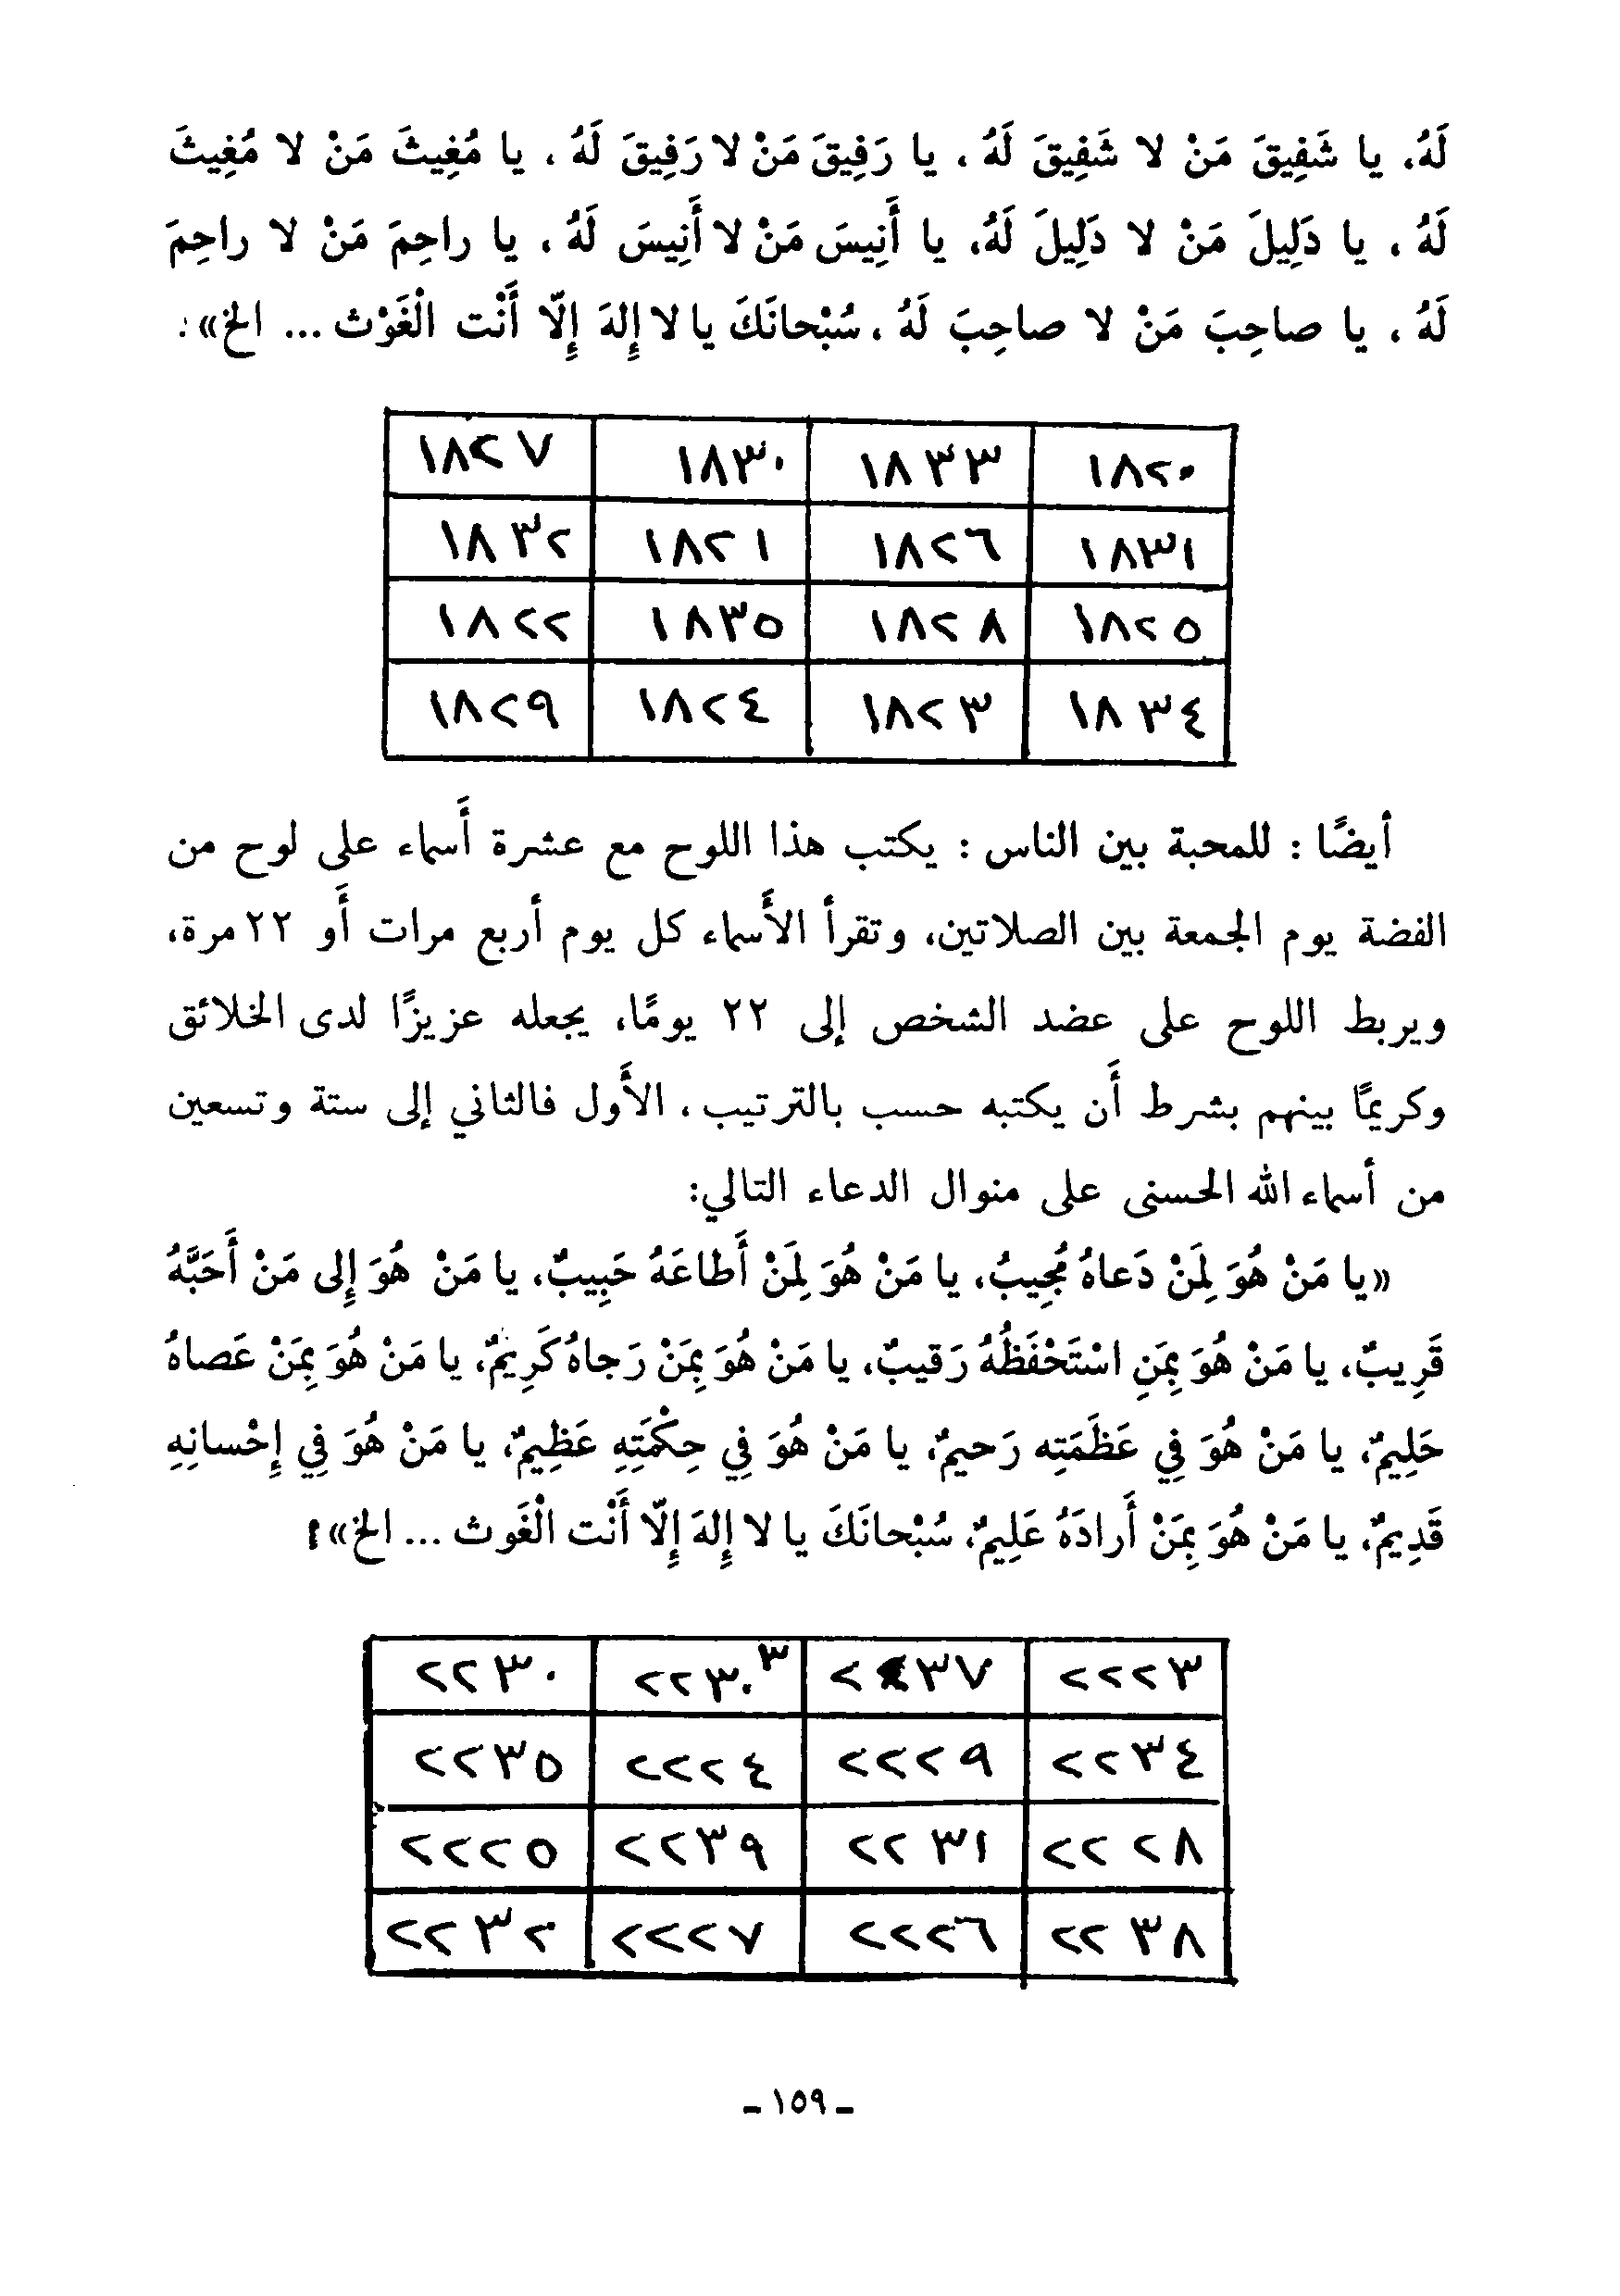 لَهُ، يا شَفِيقَ مَنْ لا شَفِيقَ لَهُ ، يا رَفِيقَ مَنْ لا رَفِيقَ لَهُ ، يا مُغِيثَ مَنْ لا مُغِيثَ
لَهُ ، يا دَلِيلَ مَنْ لا دَلِيلَ لَهُ، يا أَنِيسَ مَنْ لا أَنِيسَ لَهُ ، يا راحِمَ مَنْ لا راحِمَ
لَهُ ، يا صاحِبَ مَنْ لا صاحِبَ لَهُ ، سُبْحانَكَ يا لا إِلهَ إِلّا أَنْت الْغَوْث ... الخ» :
١٨٢٠ ١٨٣٣ ١٨٣٠ ١٨٢٧
١٨٣١ ١٨٢٦ ١٨٢١ ١٨٣٢
١٨٢٥ ١٨٢٨ ١٨٣٥ ١٨٢٢
١٨٣٤ ١٨٢٣ ١٨٢٤ ١٨٢٩
أيضًا : للمحبة بين الناس : يكتب هذا اللوح مع عشرة أَسماء على لوح من
الفضة يوم الجمعة بين الصلاتين، وتقرأ الأَسماء كل يوم أربع مرات أَو ٢٢ مرة،
ويربط اللوح على عضد الشخص إلى ٢٢ يومًا، يجعله عزيزًا لدى الخلائق
وكريمًا بينهم بشرط أَن يكتبه حسب بالترتيب ، الأَول فالثاني إلى ستة وتسعين
من أسماء الله الحسنى على منوال الدعاء التالي:
«يا مَنْ هُوَ لِمَنْ دَعاهُ مُجِيبُ، يا مَنْ هُوَ لِمَنْ أَطاعَهُ حَبِيبٌ، يا مَنْ هُوَ إِلى مَنْ أَحَبَّهُ
قَرِيبٌ، يا مَنْ هُوَ بِمَنِ اسْتَحْفَظُهُ رَقيبٌ، يا مَنْ هُوَ بِمَنْ رَجاهُ كَرِيمٌ، يا مَنْ هُوَ بِمَنْ عَصاهُ
حَلِيمٌ، يا مَنْ هُوَ فِي عَظَمَتِه رَحيمٌ، يا مَنْ هُوَ فِي حِكْمَتِهِ عَظِيمٌ، يا مَنْ هُوَ فِي إِحْسانِهِ
قَدِيمٌ، يا مَنْ هُوَ بِمَنْ أَرادَهُ عَلِيمٌ، سُبْحانَكَ يا لا إِلهَ إِلّا أَنْت الْغَوث ... الخ» :
٢٢٢٣ ٢٢٣٧ ٢٢٣٠٣ ٢٢٣٠
٢٢٣٤ ٢٢٢٩ ٢٢٢٤ ٢٢٣٥
٢٢٢٨ ٢٢٣١ ٢٢٣٩ ٢٢٢٥
٢٢٣٨ ٢٢٢٦ ٢٢٢٧ ٢٢٣٢
ـ ١٥٩ ـ